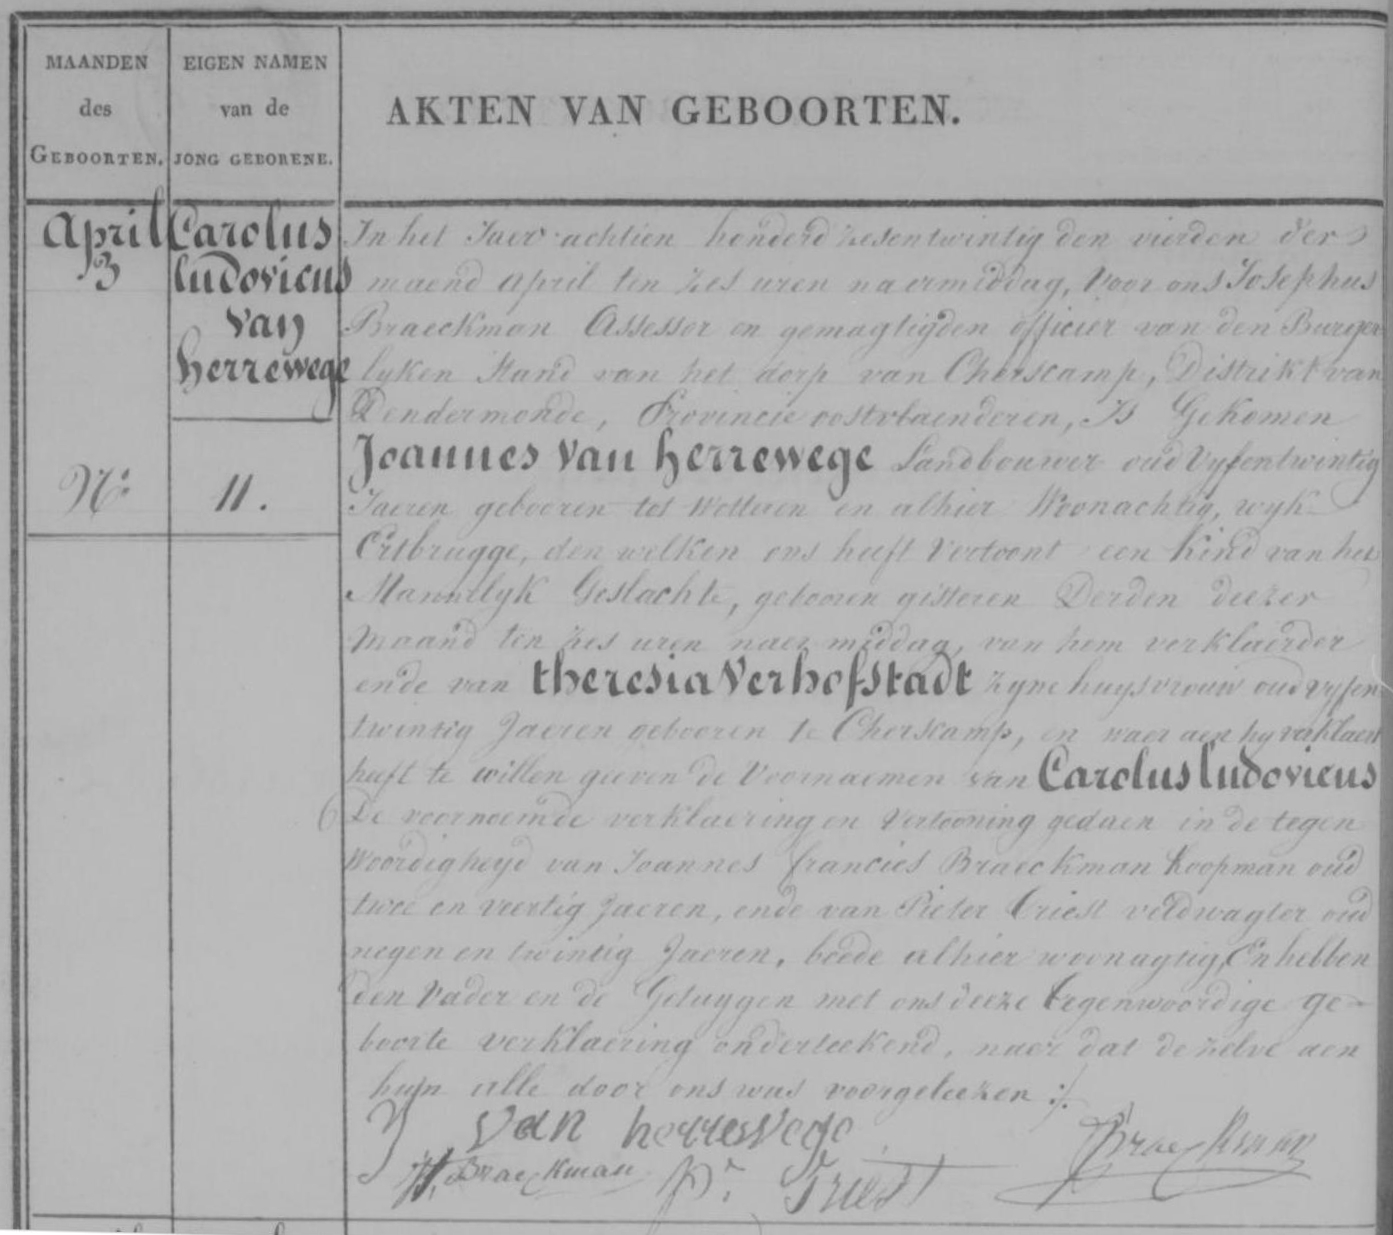 MAANDEN
des
GEBOORTEN.
EIGEN NAMEN
van de
JONG GEBORENE.
AKTEN VAN GEBOORTEN.
April
3
Carolus
ludovicus
Van
herrewege
N.o 11.
In het Jaer achtien honderd zesentwintig den vierden der
maend april ten zes uren naermiddag, Voor ons Josephus
Braeckman Assessor en gemagtigden officier van den Burger
lyken Stand van het dorp van Cherscamp, Distrikt van
Dendermonde, Provincie oostvlaenderen, Is Gekomen
Joannes Van herrewege Landbouwer oud Vyfentwintig
Jaeren gebooren tot Wetteren en alhier Woonachtig, wyk
Ertbrugge, den welken ons heeft Vertoont een Kind van het
Mannelyk Geslachte, gebooren gisteren Derden deezer
maand ten zes uren naer middag, van hem verklaerder
ende van theresia Verhofstadt zyne huysvrouw oud vyfen
twintig Jaeren gebooren te Cherscamp, en waer aen hy verklaert
heeft te willen geeven de Voornaemen van Carolus ludovicus
De voornoemde verklaering en Vertooning gedaen in de tegen
Woordigheyd van Joannes francies Braeckman Koopman oud
twee en veertig Jaeren, ende van Pieter Triest veldwagter oud
negen en twintig Jaeren, beede alhier woonagtig, En hebben
den Vader en de Getuygen met ons deeze tegenwoordige ge-
boorte verklaering onderteekend, naer dat de zelve aen
hun alle door ons was voorgeleezen :/.
J Van herrewege
Braeckman
Braeckman
P.r Triest